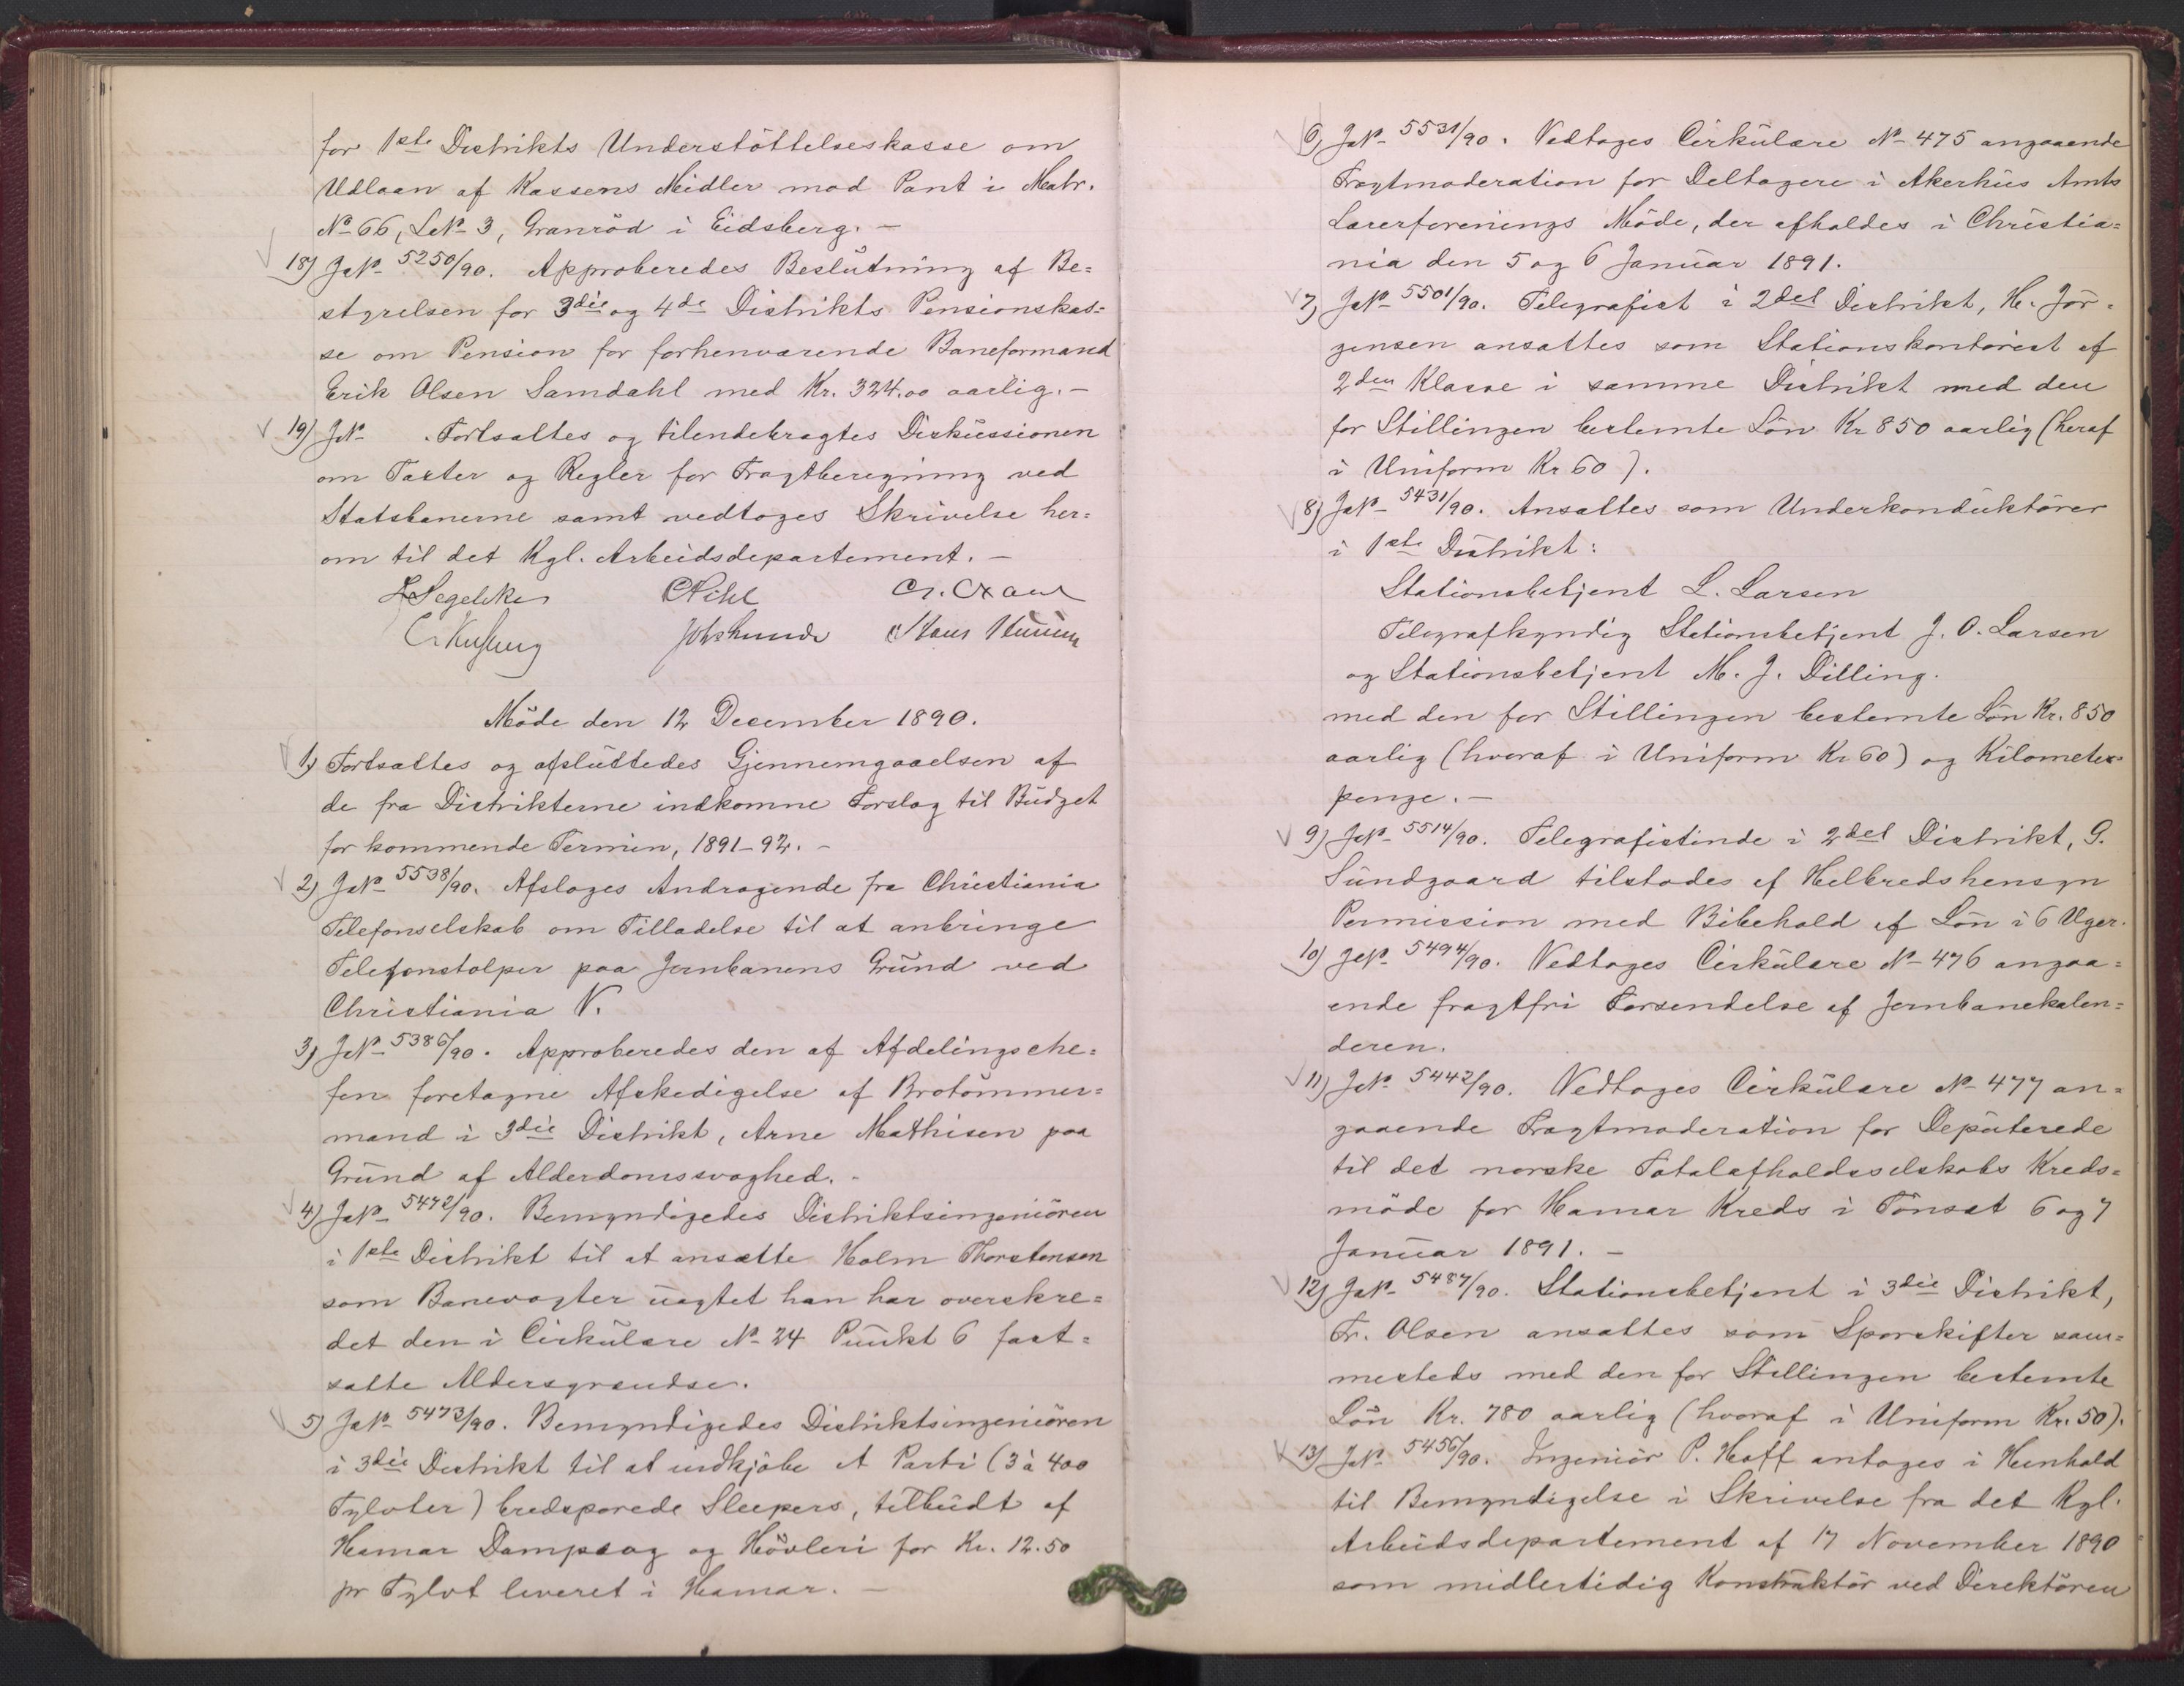 for 1ste Distrikts Understöttelseskasse om
Udlaan af Kassens Midler mod Pant i Matr.
No 66, LNo 3, Granröd i Eidsberg. -
18) JNo 5250/90. Approberedes Beslutning af Be=
styrelsen for 3die og 4de Distrikts Pensionskas=
se om Pension for forhenværende Baneformand
Erik Olsen Samdahl med Kr. 324.00 aarlig. -
19) JNo . Fortsattes og tilendebragtes Diskussionen
om Taxter og Regler for Fragtberegning ved
Statsbanerne samt vedtoges Skrivelse her=
om til det Kgl. Arbeidsdepartement. -
Segelcke CPihl
Möde den 12 December 1890.
1) Fortsattes og afsluttedes Gjennemgaaelsen af
de fra Distrikterne indkomne Forslag til Budget
for kommende Termin, 1891-92. -
2) JNo 5538/90. Afsloges Andragende fra Christiania
Telefonselskab om Tilladelse til at anbringe
Telefonstolper paa Jernbanens Grund ved
Christiania V.
3) JNo 5386/90. Approberedes den af Afdelingsche=
fen foretagne Afskedigelse af Brotömmer=
mand i 3die Distrikt, Arne Mathisen paa
Grund af Alderdomssvaghed. -
4) JNo 5472/90. Bemyndigedes Distriktsingeniören
i 1ste Distrikt til at ansætte Holm Thorstensen
som Banevogter uagtet han har overskre=
det den i Cirkulære No 24 Punkt 6 fast=
satte Aldersgrændse.
5) JNo 5473/90. Bemyndigedes Distriktsingeniören
i 3die Distrikt til at indkjöbe et Parti (3 à 400
Tylvter) bredsporede Sleepers, tilbudt af
Hamar Dampsag og Hövleri for Kr. 12.50
pr Tylvt leveret i Hamar. -
6) JNo 5531/90. Vedtoges Cirkulære No 475 angaaende
Fragtmoderation for Deltagere i Akerhus Amts
Lærerforenings Möde, der afholdes i Christia=
nia den 5 og 6 Januar 1891.
7) JNo 5501/90. Telegrafist i 2det Distrikt, H. Jör=
gensen ansattes som Stationskontorist af
2den Klasse i samme Distrikt med den
for Stillingen bestemte Lön Kr 850 aarlig (heraf
i Uniform Kr 60).
8) JNo 5431/90. Ansattes som Underkonduktörer
i 1ste Distrikt:
Stationsbetjent L. Larsen
Telegrafkyndig Stationsbetjent J. O. Larsen
og Stationsbetjent M. J. Dilling.
med den for Stillingen bestemte Lön Kr. 850
aarlig (hvoraf i Uniform Kr 60) og Kilometer
penge. -
9) JNo 5514/90. Telegrafistinde i 2det Distrikt, G.
Sundgaard tilstodes af Helbredshensyn
Permission med Bibehold af Lön i 6 Uger.
10) JNo 5494/90. Vedtoges Cirkulære No 476 angaa=
ende fragtfri Forsendelse af Jernbanekalen=
deren.
11) JNo 5442/90. Vedtoges Cirkulære No 477 an=
gaaende Fragtmoderation for Deputerede
til det norske Totalafholdsselskabs Kreds=
möde for Hamar Kreds i Tönset 6 og 7
Januar 1891. -
12) JNo 5487/90. Stationsbetjent i 3die Distrikt,
Fr. Olsen ansattes som Sporskifter sam=
mesteds med den for Stillingen bestemte
Lön Kr. 780 aarlig (hvoraf i Uniform Kr. 50).
13) JNo 5456/90. Ingeniör P. Hoff antoges i Henhold
til Bemyndigelse i Skrivelse fra det Kgl.
Arbeidsdepartement af 17 November 1890
som midlertidig Konstruktör ved Direktören